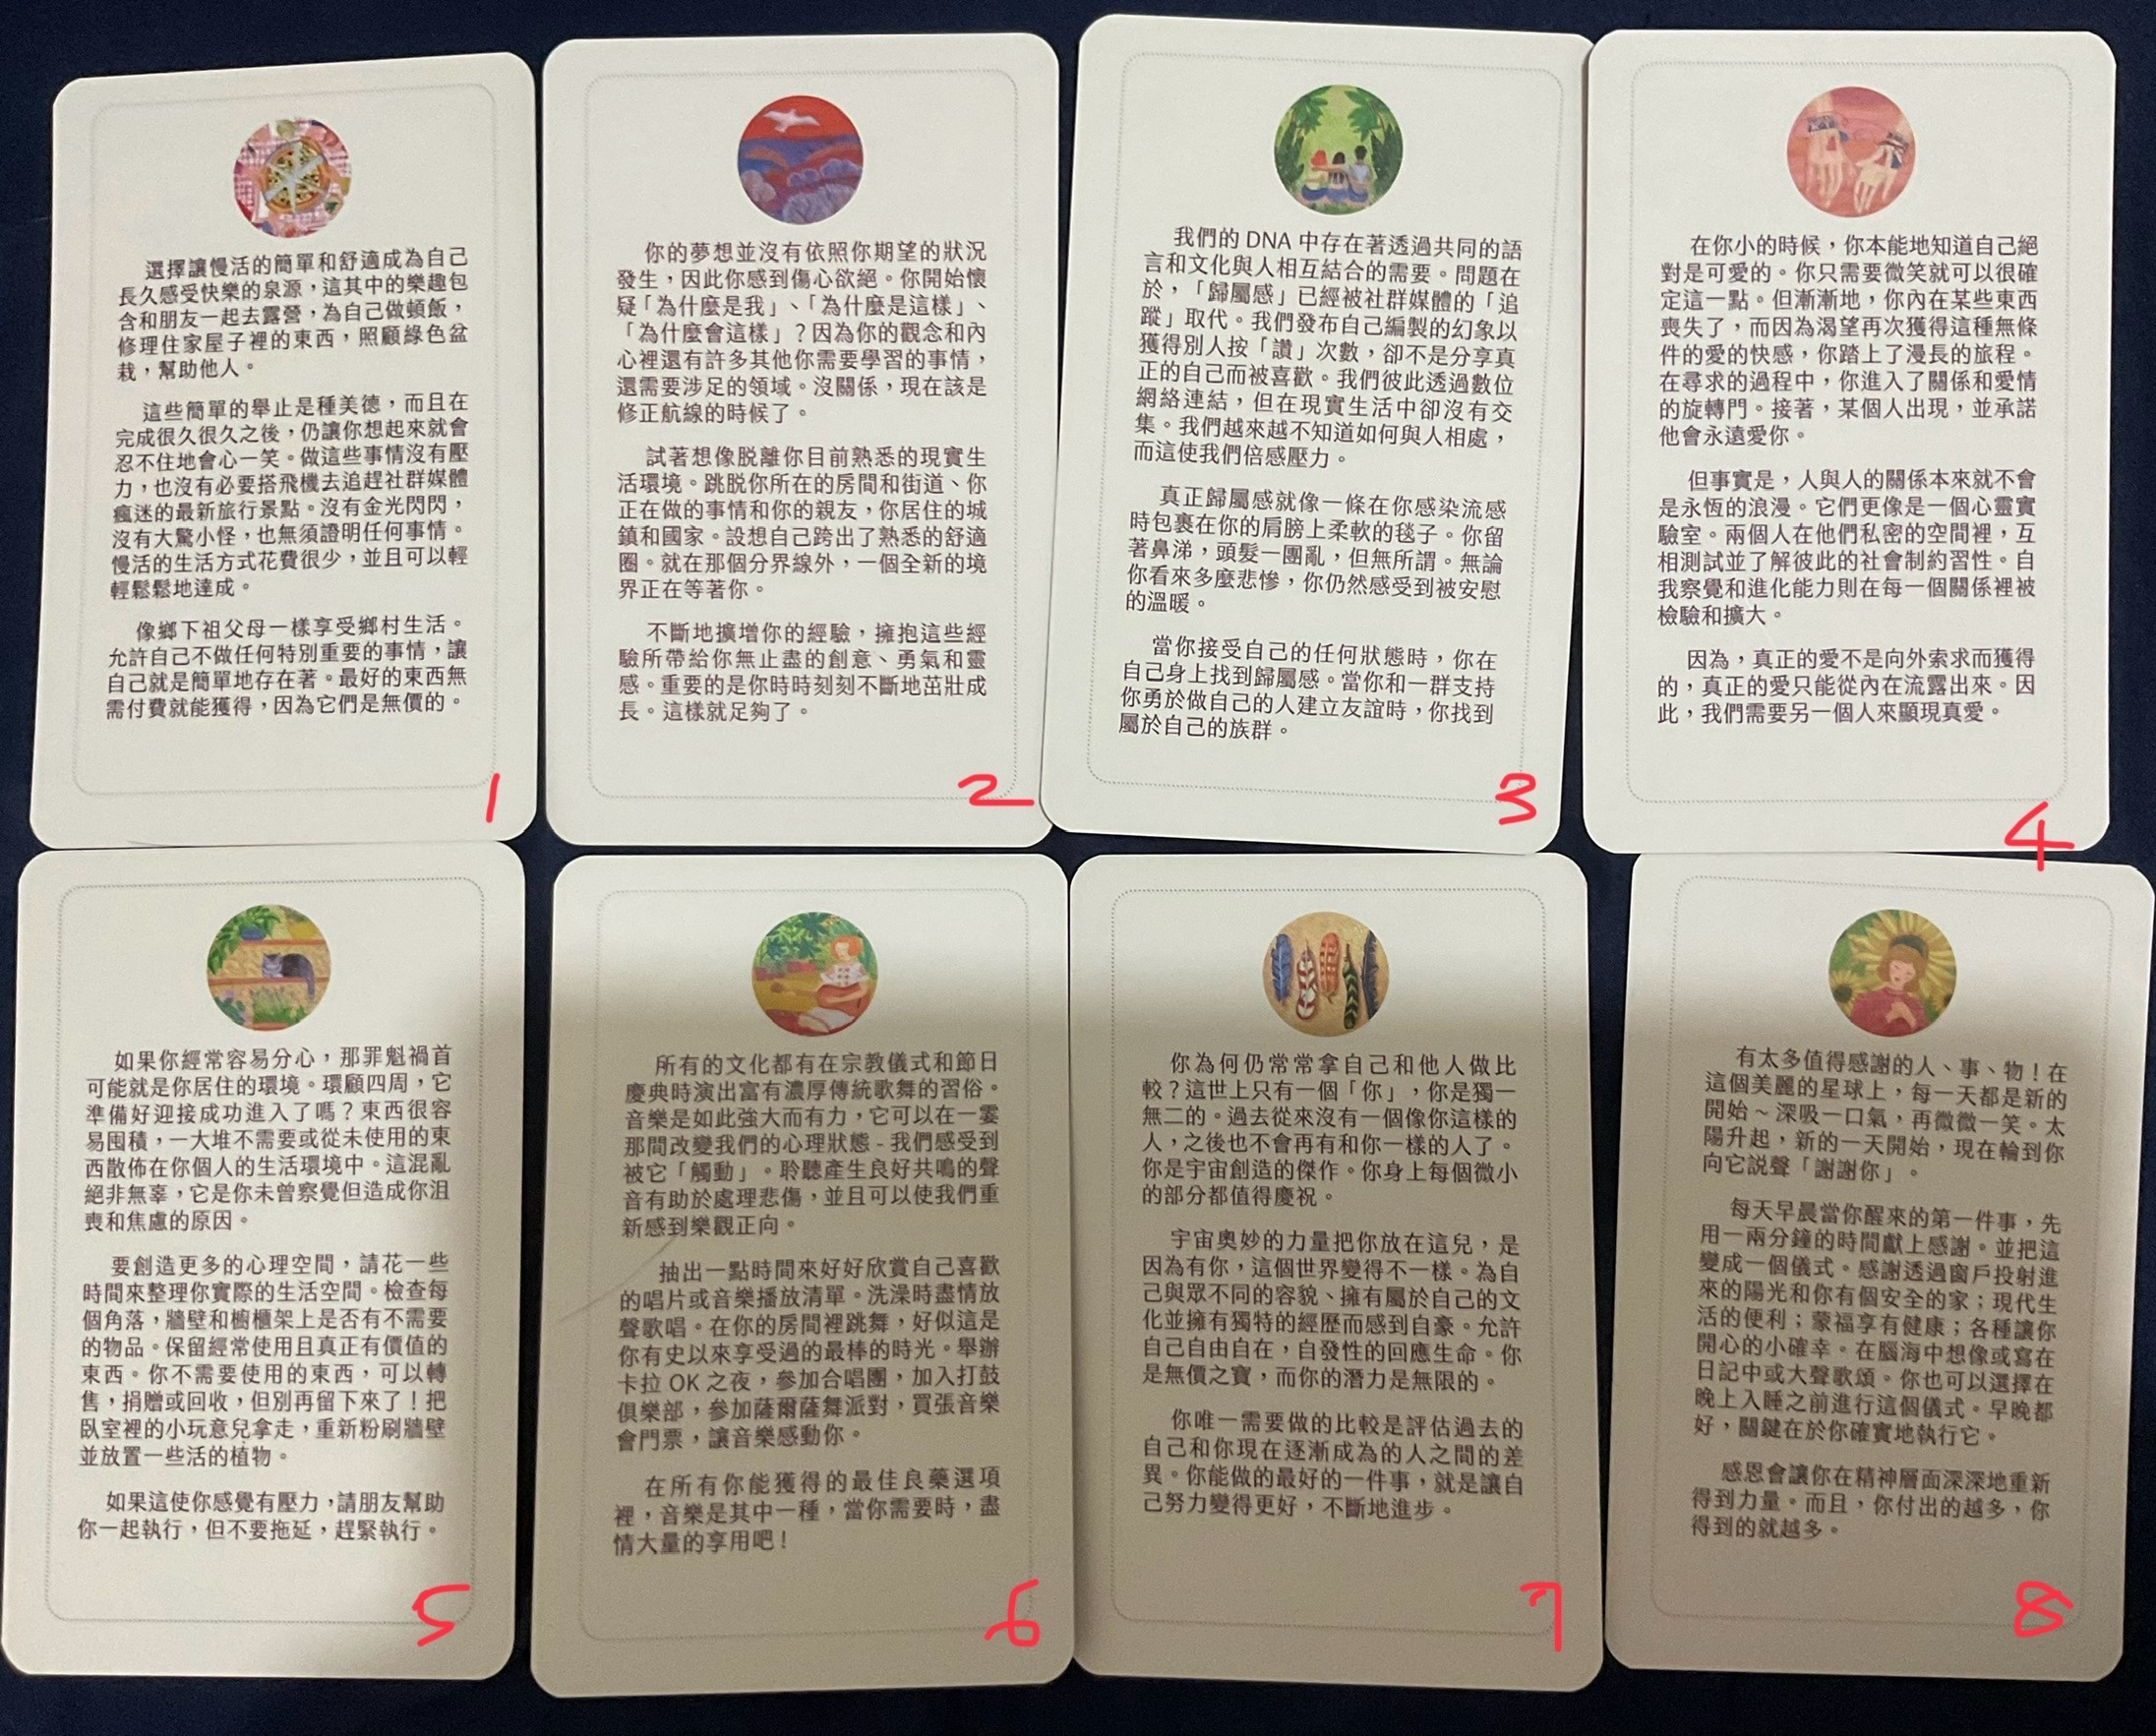 選擇讓慢活的簡單和舒適成為自己
長久感受快樂的泉源，這其中的樂趣包
含和朋友一起去露營，為自己做頓飯，
修理住家屋子裡的東西，照顧綠色盆
栽，幫助他人。
這些簡單的舉止是種美德，而且在
完成很久很久之後，仍讓你想起來就會
忍不住地會心一笑。做這些事情沒有壓
力，也沒有必要搭飛機去追趕社群媒體
瘋迷的最新旅行景點。沒有金光閃閃，
沒有大驚小怪，也無須證明任何事情。
慢活的生活方式花費很少，並且可以輕
輕鬆鬆地達成。
像鄉下祖父母一樣享受鄉村生活。
允許自己不做任何特別重要的事情，讓
自己就是簡單地存在著。最好的東西無
需付費就能獲得，因為它們是無價的。
1
你的夢想並沒有依照你期望的狀況
發生，因此你感到傷心欲絕。你開始懷
疑「為什麼是我」、「為什麼是這樣」、
「為什麼會這樣」？因為你的觀念和內
心裡還有許多其他你需要學習的事情，
還需要涉足的領域。沒關係，現在該是
修正航線的時候了。
試著想像脫離你目前熟悉的現實生
活環境。跳脫你所在的房間和街道、你
正在做的事情和你的親友，你居住的城
鎮和國家。設想自己跨出了熟悉的舒適
圈。就在那個分界線外，一個全新的境
界正在等著你。
不斷地擴增你的經驗，擁抱這些經
驗所帶給你無止盡的創意、勇氣和靈
感。重要的是你時時刻刻不斷地茁壯成
長。這樣就足夠了。
2
我們的 DNA 中存在著透過共同的語
言和文化與人相互結合的需要。問題在
於，「歸屬感」已經被社群媒體的「追
蹤」取代。我們發布自己編製的幻象以
獲得別人按「讚」次數，卻不是分享真
正的自己而被喜歡。我們彼此透過數位
網絡連結，但在現實生活中卻沒有交
集。我們越來越不知道如何與人相處，
而這使我們倍感壓力。
真正歸屬感就像一條在你感染流感
時包裹在你的肩膀上柔軟的毯子。你留
著鼻涕，頭髮一團亂，但無所謂。無論
你看來多麼悲慘，你仍然感受到被安慰
的溫暖。
當你接受自己的任何狀態時，你在
自己身上找到歸屬感。當你和一群支持
你勇於做自己的人建立友誼時，你找到
屬於自己的族群。
3
在你小的時候，你本能地知道自己絕
對是可愛的。你只需要微笑就可以很確
定這一點。但漸漸地，你內在某些東西
喪失了，而因為渴望再次獲得這種無條
件的愛的快感，你踏上了漫長的旅程。
在尋求的過程中，你進入了關係和愛情
的旋轉門。接著，某個人出現，並承諾
他會永遠愛你。
但事實是，人與人的關係本來就不會
是永恆的浪漫。它們更像是一個心靈實
驗室。兩個人在他們私密的空間裡，互
相測試並了解彼此的社會制約習性。自
我察覺和進化能力則在每一個關係裡被
檢驗和擴大。
因為，真正的愛不是向外索求而獲得
的，真正的愛只能從內在流露出來。因
此，我們需要另一個人來顯現真愛。
4
如果你經常容易分心，那罪魁禍首
可能就是你居住的環境。環顧四周，它
準備好迎接成功進入了嗎？東西很容
易囤積，一大堆不需要或從未使用的東
西散佈在你個人的生活環境中。這混亂
絕非無辜，它是你未曾察覺但造成你沮
喪和焦慮的原因。
要創造更多的心理空間，請花一些
時間來整理你實際的生活空間。檢查每
個角落，牆壁和櫥櫃架上是否有不需要
的物品。保留經常使用且真正有價值的
東西。你不需要使用的東西，可以轉
售，捐贈或回收，但別再留下來了！把
臥室裡的小玩意兒拿走，重新粉刷牆壁
並放置一些活的植物。
如果這使你感覺有壓力，請朋友幫助
你一起執行，但不要拖延，趕緊執行。
5
所有的文化都有在宗教儀式和節日
慶典時演出富有濃厚傳統歌舞的習俗。
音樂是如此強大而有力，它可以在一霎
那間改變我們的心理狀態 - 我們感受到
被它「觸動」。聆聽產生良好共鳴的聲
音有助於處理悲傷，並且可以使我們重
新感到樂觀正向。
抽出一點時間來好好欣賞自己喜歡
的唱片或音樂播放清單。洗澡時盡情放
聲歌唱。在你的房間裡跳舞，好似這是
你有史以來享受過的最棒的時光。舉辦
卡拉 OK 之夜，參加合唱團，加入打鼓
俱樂部，參加薩爾薩舞派對，買張音樂
會門票，讓音樂感動你。
在所有你能獲得的最佳良藥選項
裡，音樂是其中一種，當你需要時，盡
情大量的享用吧！
6
你為何仍常常拿自己和他人做比
較？這世上只有一個「你」，你是獨一
無二的。過去從來沒有一個像你這樣的
人，之後也不會再有和你一樣的人了。
你是宇宙創造的傑作。你身上每個微小
的部分都值得慶祝。
宇宙奧妙的力量把你放在這兒，是
因為有你，這個世界變得不一樣。為自
己與眾不同的容貌、擁有屬於自己的文
化並擁有獨特的經歷而感到自豪。允許
自己自由自在，自發性的回應生命。你
是無價之寶，而你的潛力是無限的。
你唯一需要做的比較是評估過去的
自己和你現在逐漸成為的人之間的差
異。你能做的最好的一件事，就是讓自
己努力變得更好，不斷地進步。
7
有太多值得感謝的人、事、物！在
這個美麗的星球上，每一天都是新的
開始～深吸一口氣，再微微一笑。太
陽升起，新的一天開始，現在輪到你
向它説聲「謝謝你」。
每天早晨當你醒來的第一件事，先
用一兩分鐘的時間獻上感謝。並把這
變成一個儀式。感謝透過窗戶投射進
來的陽光和你有個安全的家；現代生
活的便利；蒙福享有健康；各種讓你
開心的小確幸。在腦海中想像或寫在
日記中或大聲歌頌。你也可以選擇在
晚上入睡之前進行這個儀式。早晚都
好，關鍵在於你確實地執行它。
感恩會讓你在精神層面深深地重新
得到力量。而且，你付出的越多，你
得到的就越多。
8